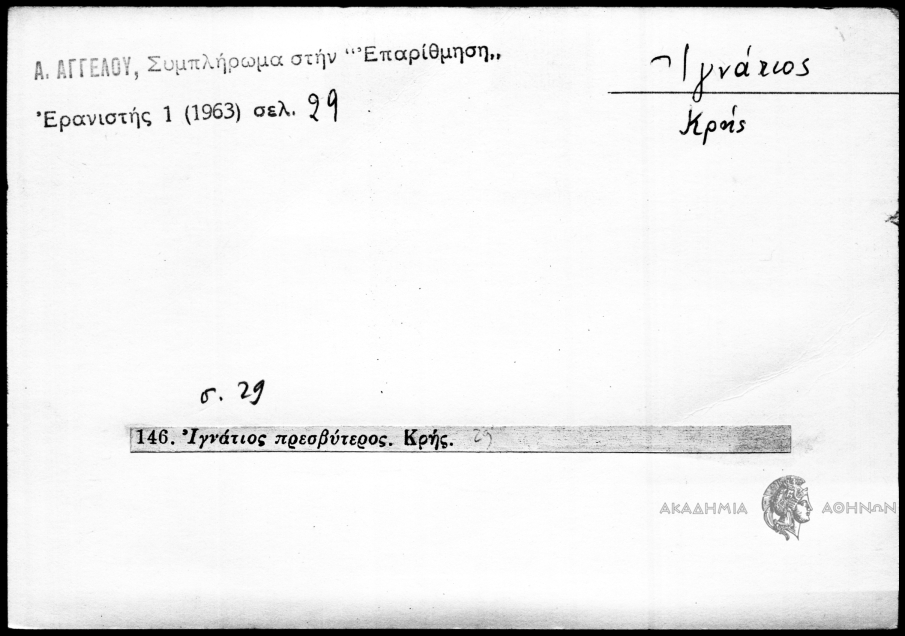 Α. ΑΓΓΕΛΟΥ, Συμπλήρωμα στήν "Ἐπαρίθμηση„
Ἐρανιστής 1 (1963) σελ. 29
Ἰγνάτιος
Κρής
σ. 29
146. Ἰγνάτιος πρεσβύτερος. Κρής. 29
ΑΚΑΔΗΜΙΑ ΑΘΗΝΩΝ